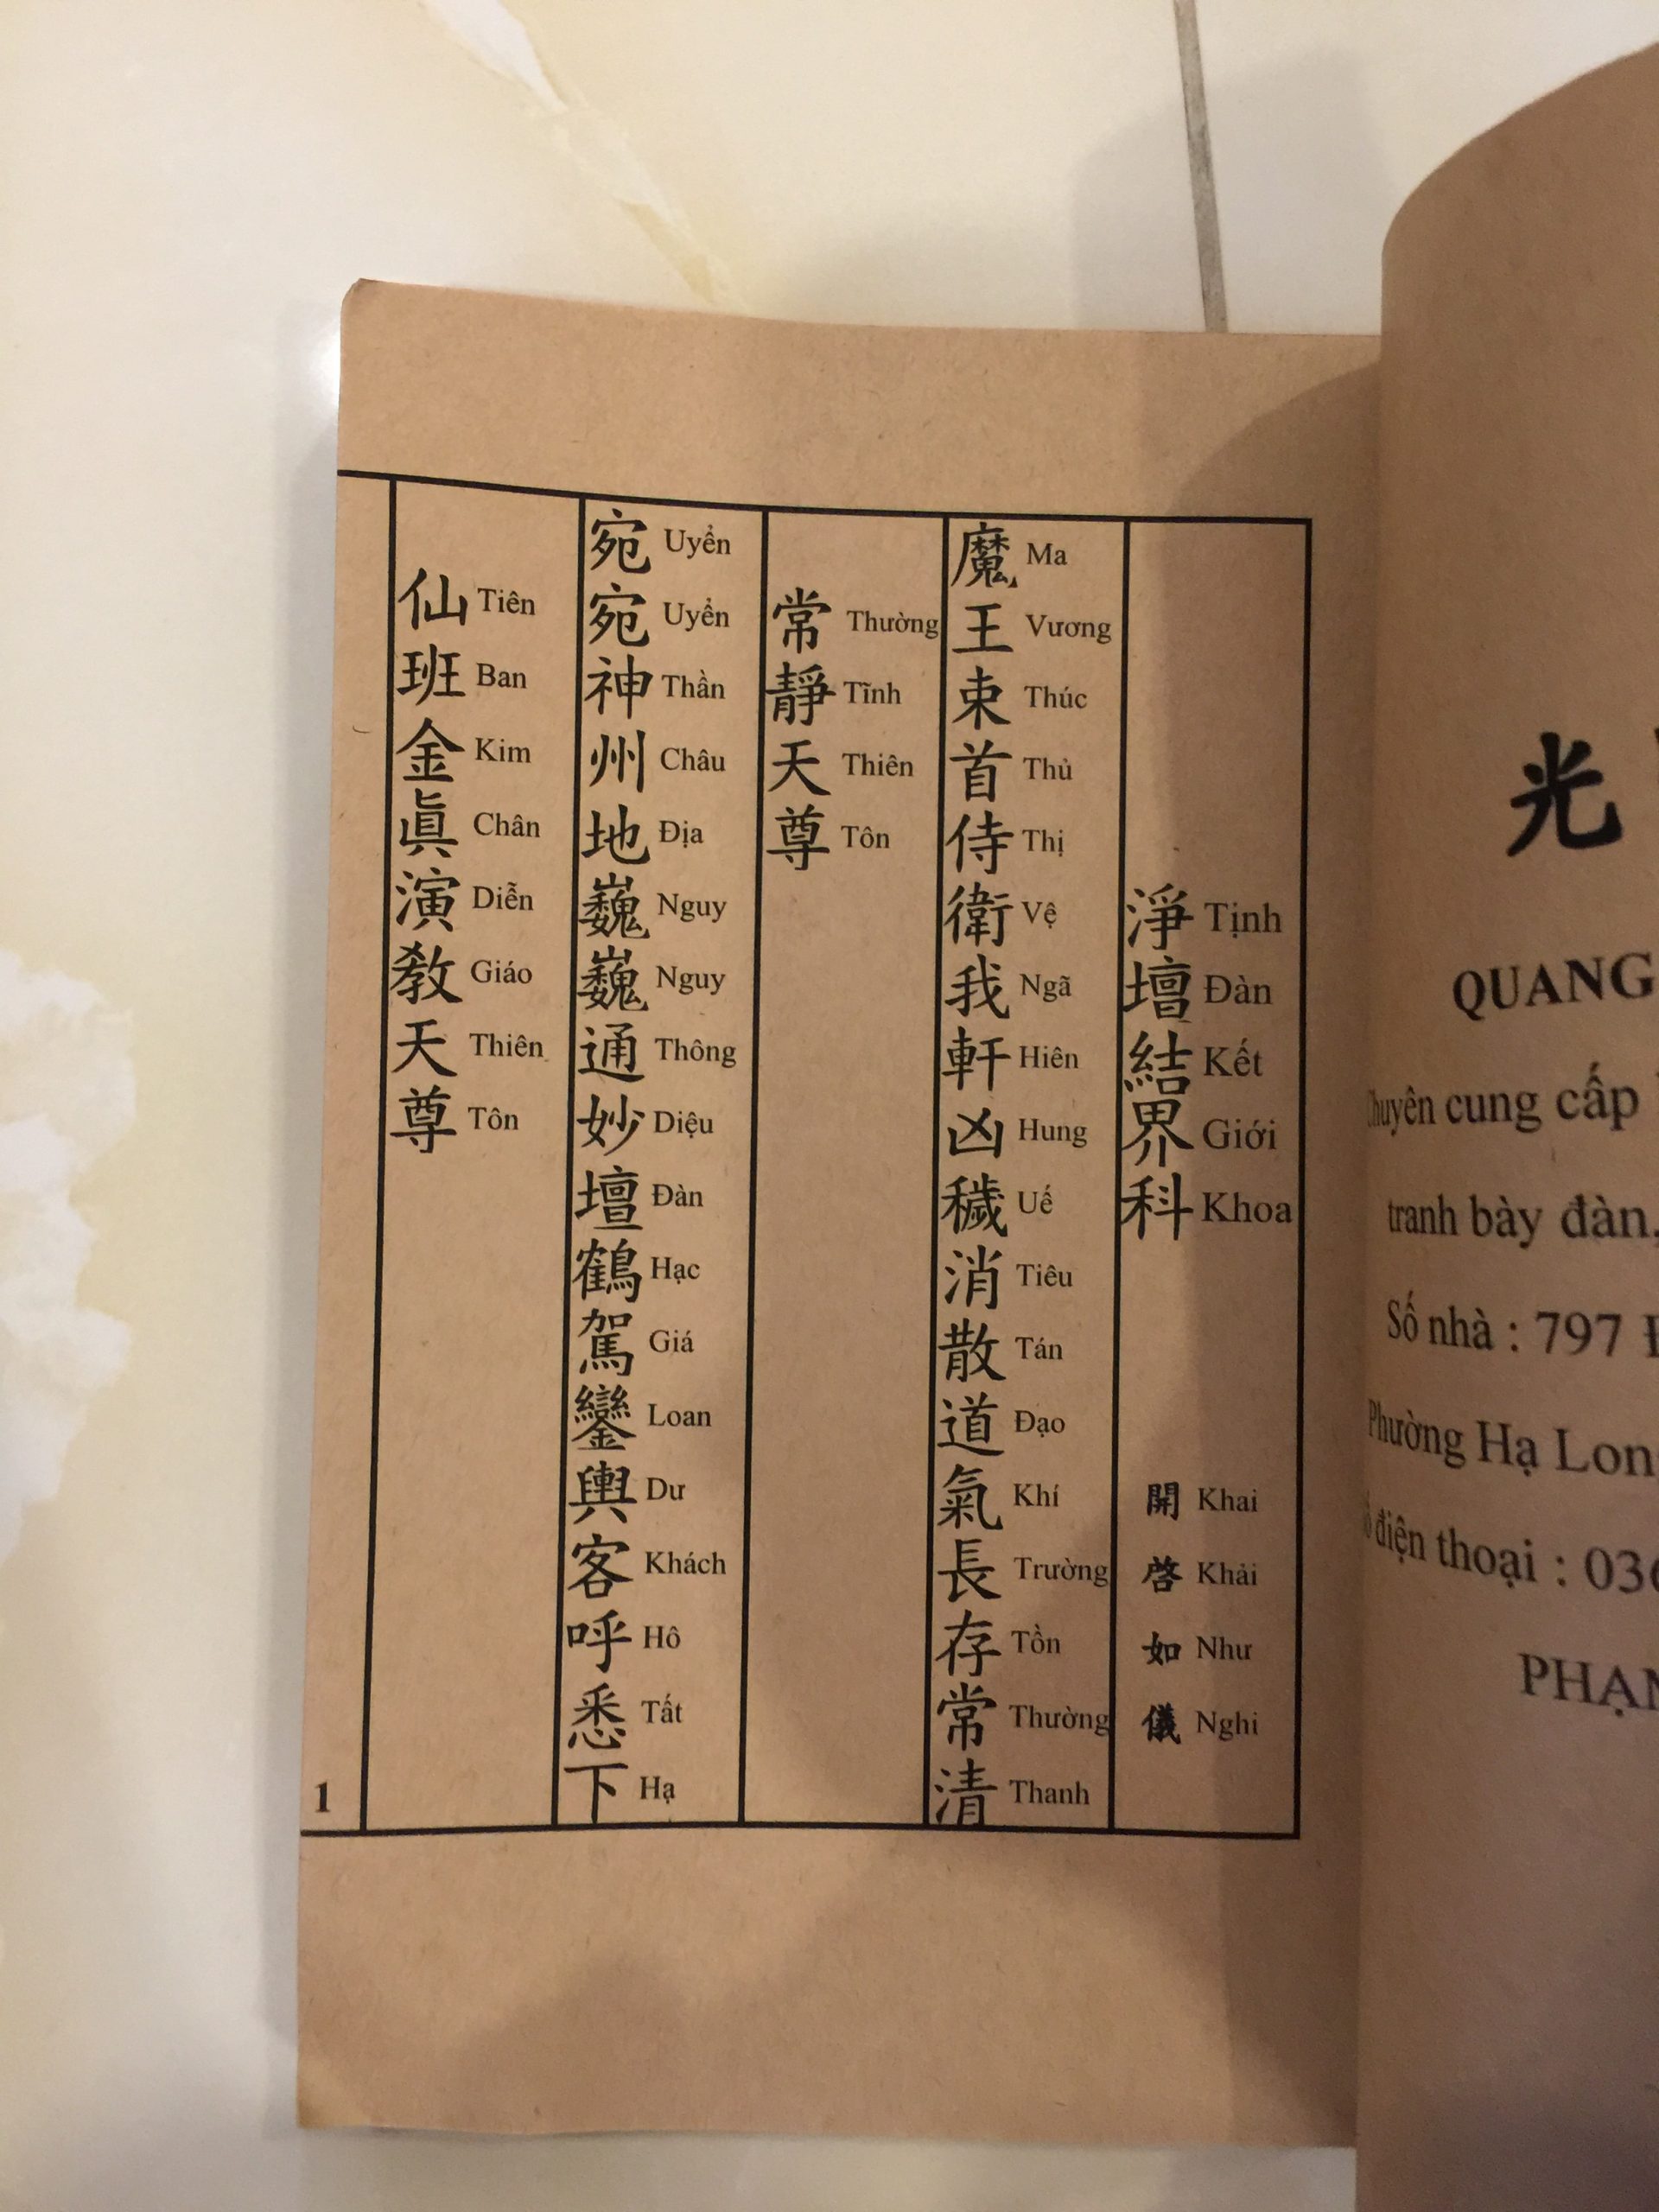 淨 Tịnh
壇 Đàn
結 Kết
界 Giới
科 Khoa
開 Khai
啓 Khải
如 Như
儀 Nghi
魔 Ma
王 Vương
束 Thúc
首 Thủ
侍 Thị
衛 Vệ
我 Ngã
軒 Hiên
凶 Hung
穢 Uế
消 Tiêu
散 Tán
道 Đạo
氣 Khí
長 Trường
存 Tồn
常 Thường
清 Thanh
常 Thường
靜 Tĩnh
天 Thiên
尊 Tôn
宛 Uyển
宛 Uyển
神 Thần
州 Châu
地 Địa
巍 Nguy
巍 Nguy
通 Thông
妙 Diệu
壇 Đàn
鶴 Hạc
駕 Giá
鑾 Loan
輿 Dư
客 Khách
呼 Hô
悉 Tất
下 Hạ
仙 Tiên
班 Ban
金 Kim
眞 Chân
演 Diễn
教 Giáo
天 Thiên
尊 Tôn
1
光
QUANG
cung cấp
tranh bày đàn,
Số nhà : 797
Phường Hạ Lon
điện thoại : 036